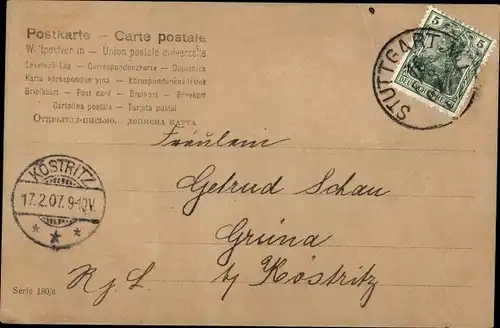 Postkarte – Carte postale
Weltpostverein – Union postale universelle
Levelező-Lap – Correspondenzkarte – Dopisnice
Karta korespondencyjna – Korespondenční lístek
Briefkaart – Post card – Brefkort – Brevkort
Cartolina postale – Tarjeta postal
Открытое письмо. дописна карта
5 5
DEUTSCHES REICH
STUTTGART
KÖSTRITZ
17.2.07. 9-10V.
* * *
Fräulein
Getrud Schau
Grüna
b/ Köstritz
R. j. L.
Serie 180/s